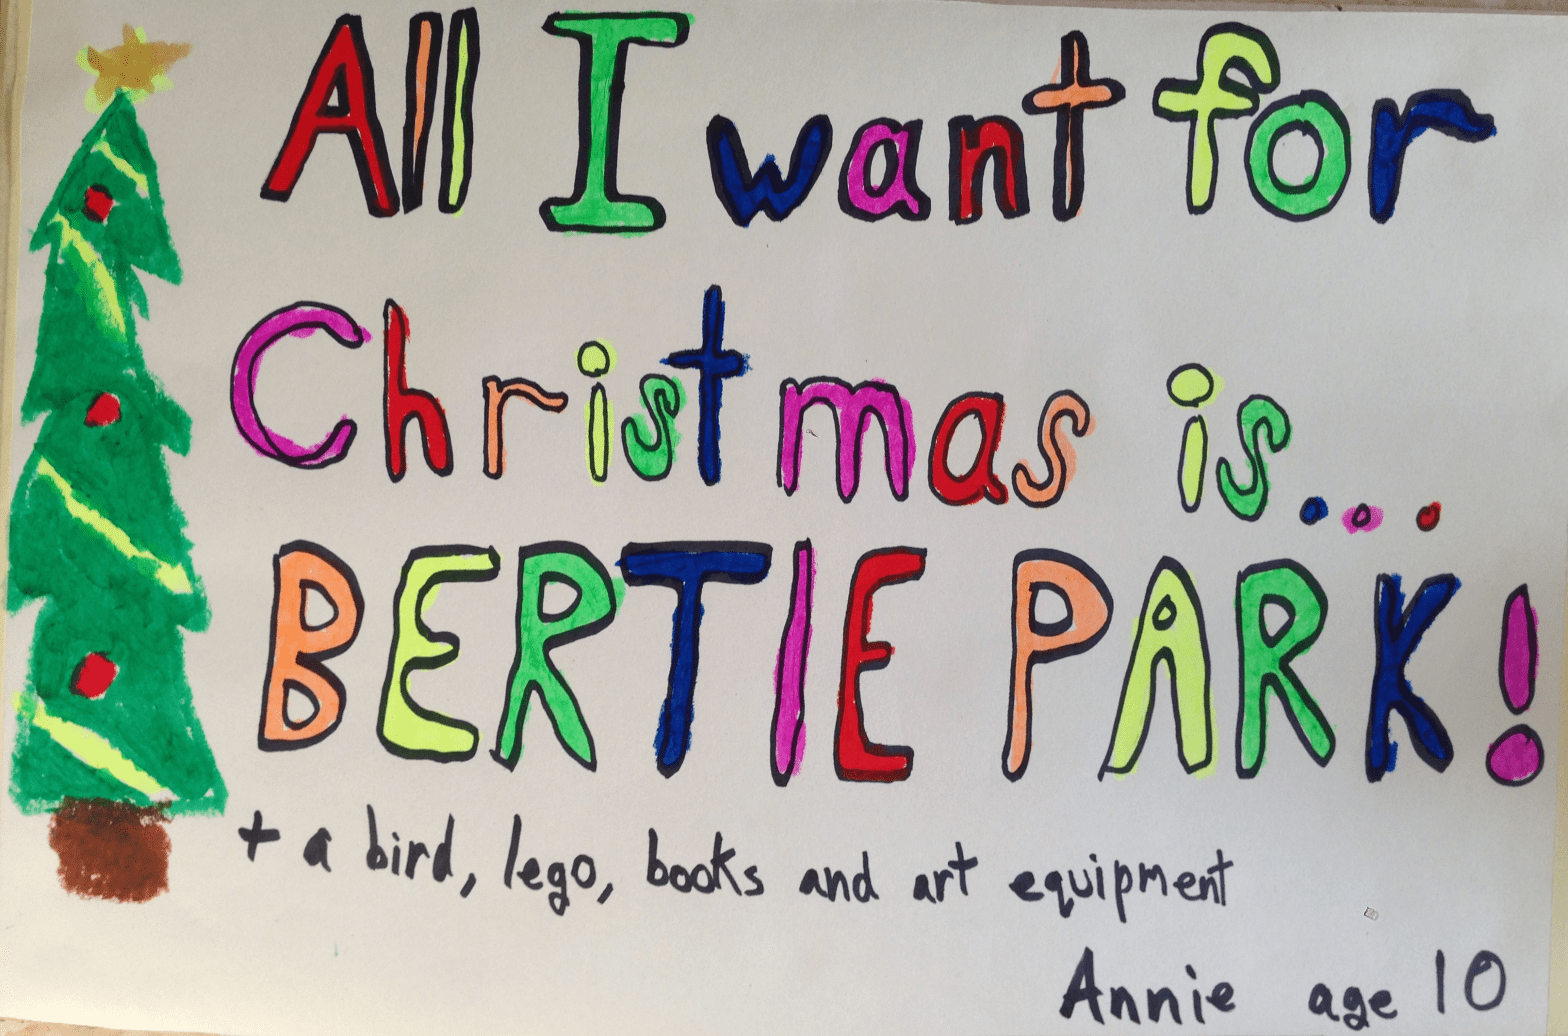 All I want for
Christmas is....
BERTIE PARK!
+ a bird, lego, books and art equipment
Annie age 10